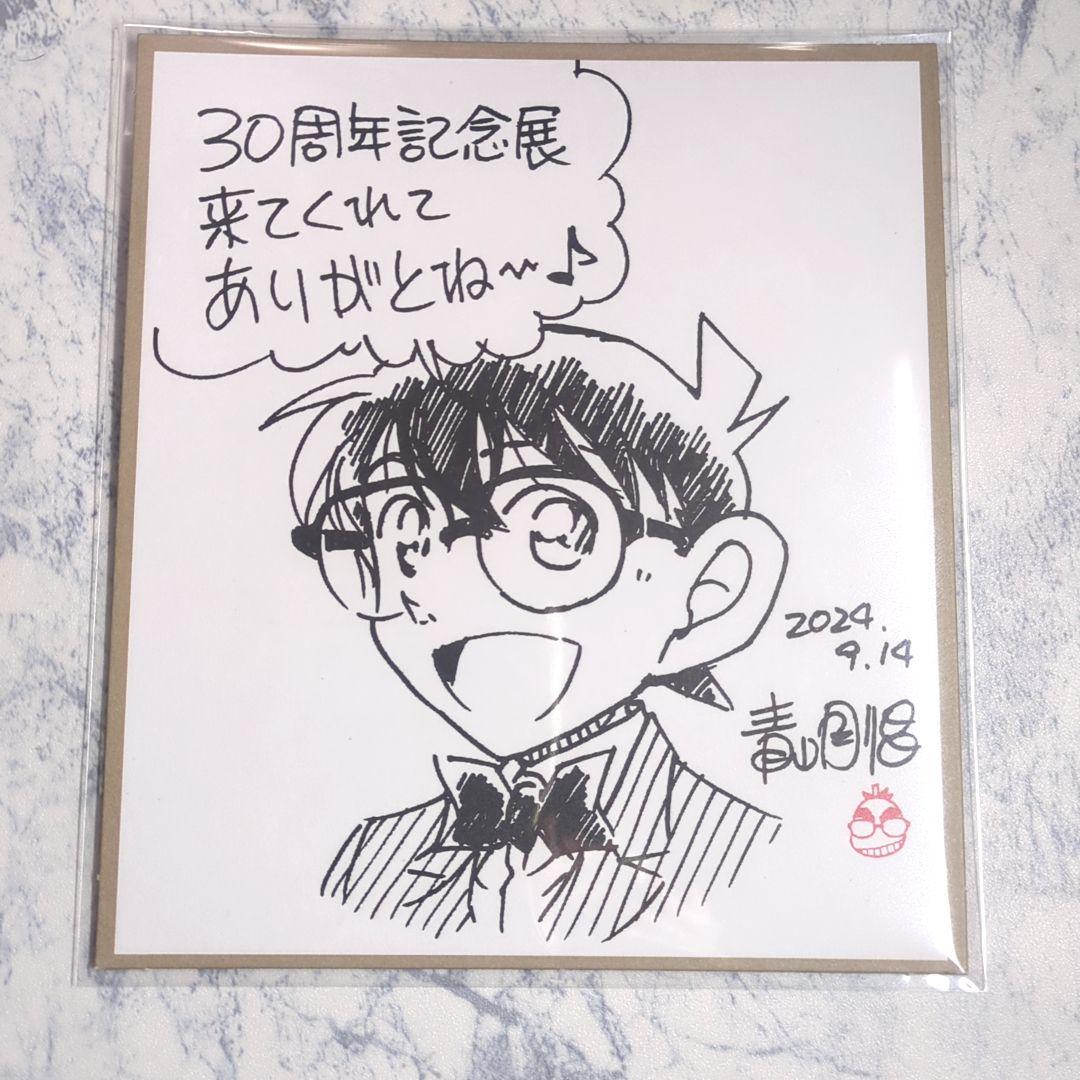 30周年記念展
来てくれて
ありがとね〜♪
2024.
9.14
青山剛昌